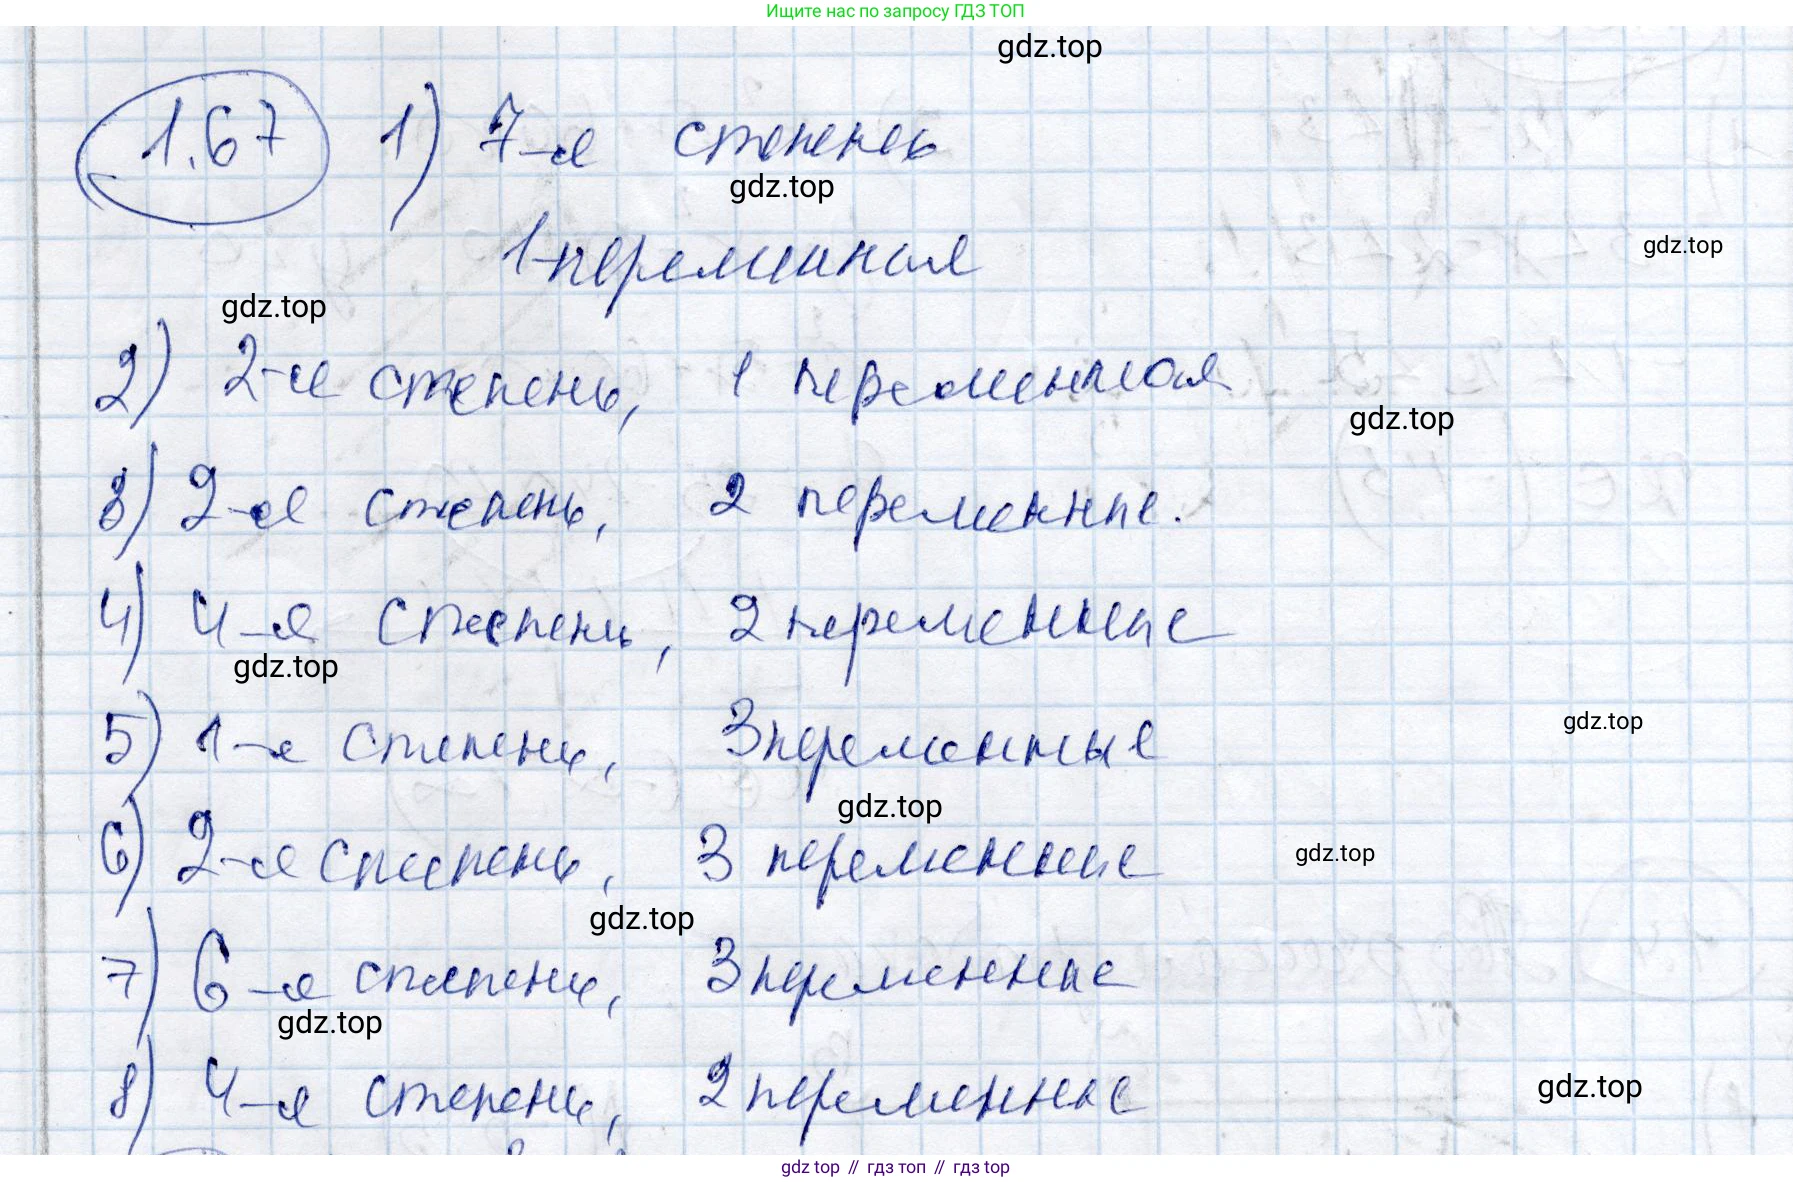 Ищите нас по запросу ГДЗ ТОП
gdz.top
1.67 1) 7-я степень
gdz.top
1-переменная
gdz.top
gdz.top
2) 2-я степень, 1 переменная
gdz.top
3) 2-я степень, 2 переменные.
4) 4-я степень, 2 переменные
gdz.top
5) 1-я степень, 3 переменные
gdz.top
gdz.top
6) 2-я степень, 3 переменные
gdz.top
gdz.top
7) 6-я степень, 3 переменные
gdz.top
8) 4-я степень, 2 переменные
gdz.top
gdz top // гдз топ // гдз top